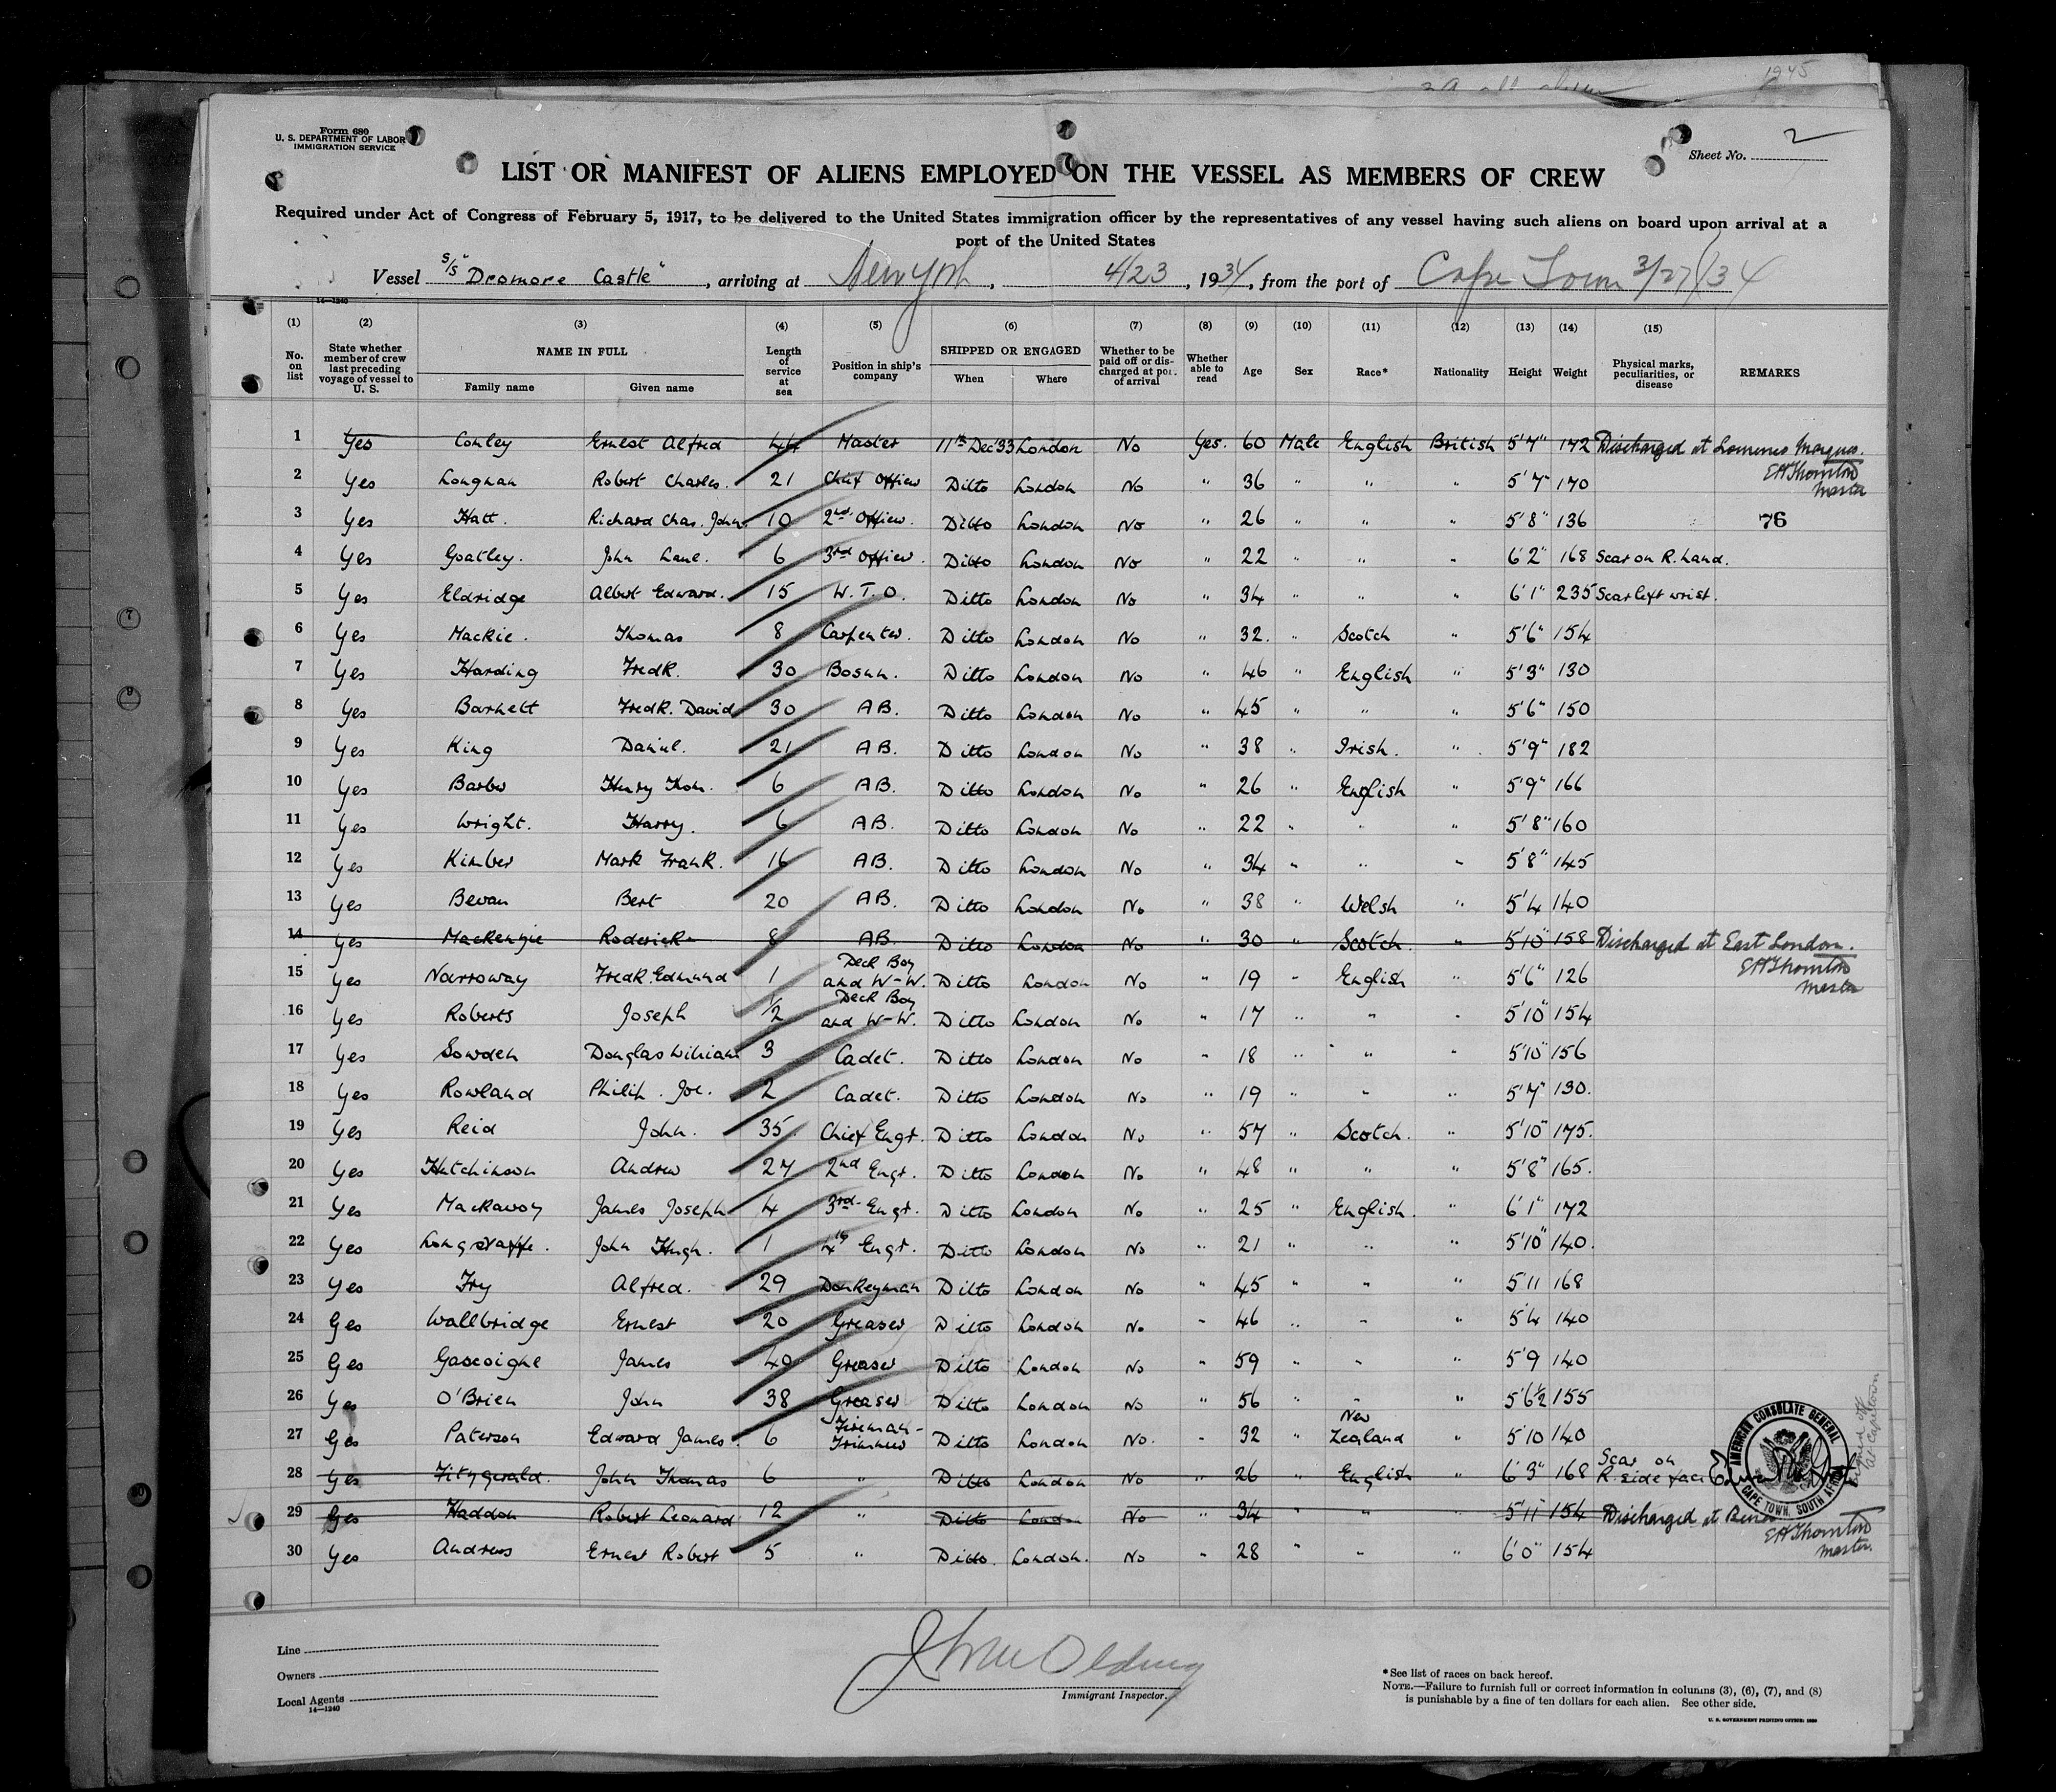 1945
Form 680
U. S. DEPARTMENT OF LABOR
IMMIGRATION SERVICE
Sheet No. 2
LIST OR MANIFEST OF ALIENS EMPLOYED ON THE VESSEL AS MEMBERS OF CREW
Required under Act of Congress of February 5, 1917, to be delivered to the United States immigration officer by the representatives of any vessel having such aliens on board upon arrival at a
port of the United States
Vessel S/S "Dromore Castle", arriving at New York, 4/23, 1934, from the port of Cape Town 3/27/34
14—1240
(1) (2) (3) (4) (5) (6) (7) (8) (9) (10) (11) (12) (13) (14) (15)
No. on list State whether member of crew last preceding voyage of vessel to U. S. NAME IN FULL Family name Given name Length of service at sea Position in ship's company SHIPPED OR ENGAGED When Where Whether to be paid off or discharged at port of arrival Whether able to read Age Sex Race* Nationality Height Weight Physical marks, peculiarities, or disease REMARKS
1 Yes Conley Ernest Alfred 44 Master 11th Dec '33 London No Yes. 60 Male English British 5'7" 172 Discharged at Lourenco Marques.
E H Thornton
Master
2 Yes Longman Robert Charles. 21 Chief Officer Ditto London No " 36 " " " 5'7" 170
3 Yes Hatt. Richard Chas. John 10 2nd Officer. Ditto London No " 26 " " " 5'8" 136 76
4 Yes Goatley. John Lane. 6 3rd Officer. Ditto London No " 22 " " " 6'2" 168 Scar on R. hand.
5 Yes Eldridge Albert Edward. 15 W. T. O. Ditto London No " 34 " " " 6'1" 235 Scar left wrist.
6 Yes Mackie. Thomas 8 Carpenter. Ditto London No " 32. " Scotch " 5'6" 154
7 Yes Harding Fredk. 30 Bosun. Ditto London No " 46 " English " 5'3" 130
8 Yes Barnett Fredk. David 30 AB. Ditto London No " 45 " " " 5'6" 150
9 Yes King Daniel. 21 AB. Ditto London No " 38 " Irish. " 5'9" 182
10 Yes Barber Henry Thom. 6 AB. Ditto London No " 26 " English " 5'9" 166
11 Yes Wright. Harry. 6 AB. Ditto London No " 22 " " " 5'8" 160
12 Yes Kimber Mark Frank. 16 AB. Ditto London No " 34 " " " 5'8" 145
13 Yes Bevan Bert 20 AB. Ditto London No " 38 " Welsh " 5'4 140
14 Yes Mackenzie Roderick 8 AB. Ditto London No " 30 " Scotch. " 5'10" 158 Discharged at East London.
E H Thornton
Master
15 Yes Narroway Fredk. Edmund 1 Deck Boy and W-W. Ditto London No " 19 " English " 5'6" 126
16 Yes Roberts Joseph 1/2 Deck Boy and W-W. Ditto London No " 17 " " " 5'10" 154
17 Yes Sowden Douglas William 3 Cadet. Ditto London No " 18 " " 5'10" 156
18 Yes Rowland Philip. Joe. 2 Cadet. Ditto London No " 19 " " " 5'7" 130.
19 Yes Reid John. 35. Chief Engr. Ditto London No " 57 " Scotch. " 5'10" 175.
20 Yes Hutchinson Andrew 27 2nd Engr. Ditto London No " 48 " " " 5'8" 165.
21 Yes Mackavoy James Joseph 4 3rd Engr. Ditto London No " 25 " English. " 6'1" 172
22 Yes Longstaffe. John Hugh. 1 4th Engr. Ditto London No " 21 " " " 5'10" 140.
23 Yes Fry Alfred. 29 Donkeyman Ditto London No " 45 " " " 5'11 168
24 Yes Wallbridge Ernest 20 Greaser Ditto London No " 46 " " " 5'4 140
25 Yes Gascoigne James 40 Greaser Ditto London No " 59 " " " 5'9 140
26 Yes O'Brien John 38 Greaser Ditto London No " 56 " " " 5'6½ 155
27 Yes Paterson Edward James. 6 Fireman-Trimmer Ditto London No. " 32 " New Zealand " 5'10 140
28 Yes Fitzgerald. John Thomas 6 " Ditto London No " 26 " English " 6'3" 168 Scar on R. side face
AMERICAN CONSULATE GENERAL
CAPE TOWN, SOUTH AFRICA
at Capetown
29 Yes Haddon Robert Leonard 12 " Ditto London No " 34 " " " 5'11" 154 Discharged at
E H Thornton
Master.
30 Yes Andrews Ernest Robert 5 " Ditto. London. No " 28 " " " 6'0" 154
Line
Owners
Local Agents
14—1240
Immigrant Inspector.
*See list of races on back hereof.
NOTE.—Failure to furnish full or correct information in columns (3), (6), (7), and (8)
is punishable by a fine of ten dollars for each alien. See other side.
U. S. GOVERNMENT PRINTING OFFICE: